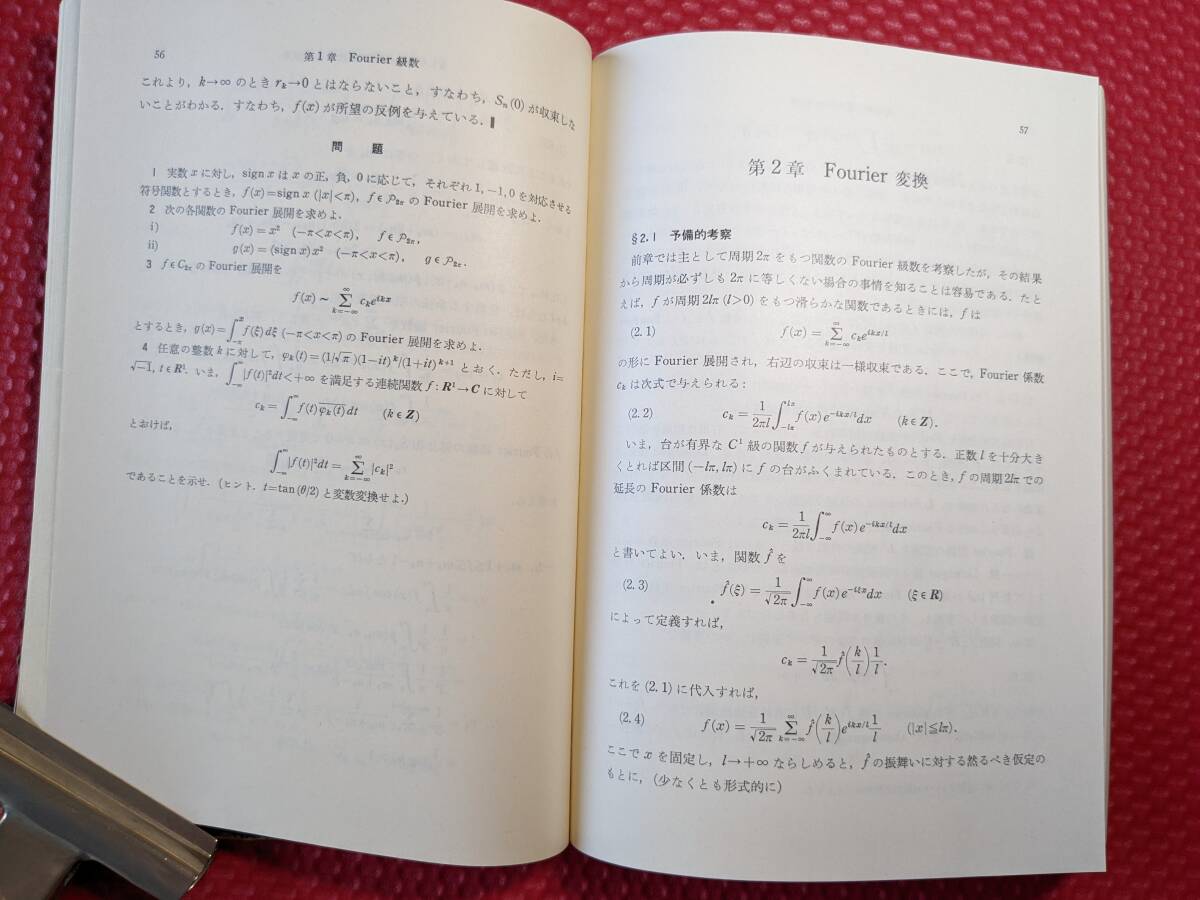 56
第1章 Fourier 級数
これより，k→∞ のとき r_k→0 とはならないこと，すなわち，S_n(0) が収束しな
いことがわかる．すなわち，f(x) が所望の反例を与えている．▌
問 題
1 実数 x に対し，sign x は x の正，負，0 に応じて，それぞれ 1, −1, 0 を対応させる
符号関数とするとき，f(x)=sign x (|x|<π)，f∈𝒫_{2π} の Fourier 展開を求めよ．
2 次の各関数の Fourier 展開を求めよ．
i) f(x)=x² (−π<x<π), f∈𝒫_{2π},
ii) g(x)=(sign x)x² (−π<x<π), g∈𝒫_{2π}.
3 f∈C_{2π} の Fourier 展開を
f(x) ~ ∑_{k=−∞}^{∞} c_k e^{ikx}
とするとき，g(x)=∫_{−π}^{x} f(ξ)dξ (−π<x<π) の Fourier 展開を求めよ．
4 任意の整数 k に対して，φ_k(t)=(1/√π)(1−it)^k/(1+it)^{k+1} とおく．ただし，i=
√−1, t∈R¹. いま，∫_{−∞}^{∞}|f(t)|²dt<+∞ を満足する連続関数 f：R¹→C に対して
c_k=∫_{−∞}^{∞} f(t)\overline{φ_k(t)}dt (k∈Z)
とおけば，
∫_{−∞}^{∞}|f(t)|²dt=∑_{k=−∞}^{∞}|c_k|²
であることを示せ．(ヒント．t=tan(θ/2) と変数変換せよ．)
57
第2章 Fourier 変換
§2.1 予備的考察
前章では主として周期 2π をもつ関数の Fourier 級数を考察したが，その結果
から周期が必ずしも 2π に等しくない場合の事情を知ることは容易である．たと
えば，f が周期 2lπ (l>0) をもつ滑らかな関数であるときには，f は
(2.1) f(x)=∑_{k=−∞}^{∞} c_k e^{ikx/l}
の形に Fourier 展開され，右辺の収束は一様収束である．ここで，Fourier 係数
c_k は次式で与えられる：
(2.2) c_k=\frac{1}{2πl}∫_{−lπ}^{lπ} f(x)e^{−ikx/l}dx (k∈Z).
いま，台が有界な C¹ 級の関数 f が与えられたものとする．正数 l を十分大き
くとれば区間 (−lπ, lπ) に f の台がふくまれている．このとき，f の周期 2lπ での
延長の Fourier 係数は
c_k=\frac{1}{2πl}∫_{−∞}^{∞} f(x)e^{−ikx/l}dx
と書いてよい．いま，関数 f̂ を
(2.3) f̂(ξ)=\frac{1}{√2π}∫_{−∞}^{∞} f(x)e^{−iξx}dx (ξ∈R)
によって定義すれば，
c_k=\frac{1}{√2π}f̂(\frac{k}{l})\frac{1}{l}.
これを (2.1) に代入すれば，
(2.4) f(x)=\frac{1}{√2π}∑_{k=−∞}^{∞} f̂(\frac{k}{l})e^{ikx/l}\frac{1}{l} (|x|≦lπ).
ここで x を固定し，l→+∞ ならしめると，f̂ の振舞いに対する然るべき仮定の
もとに，(少なくとも形式的に)